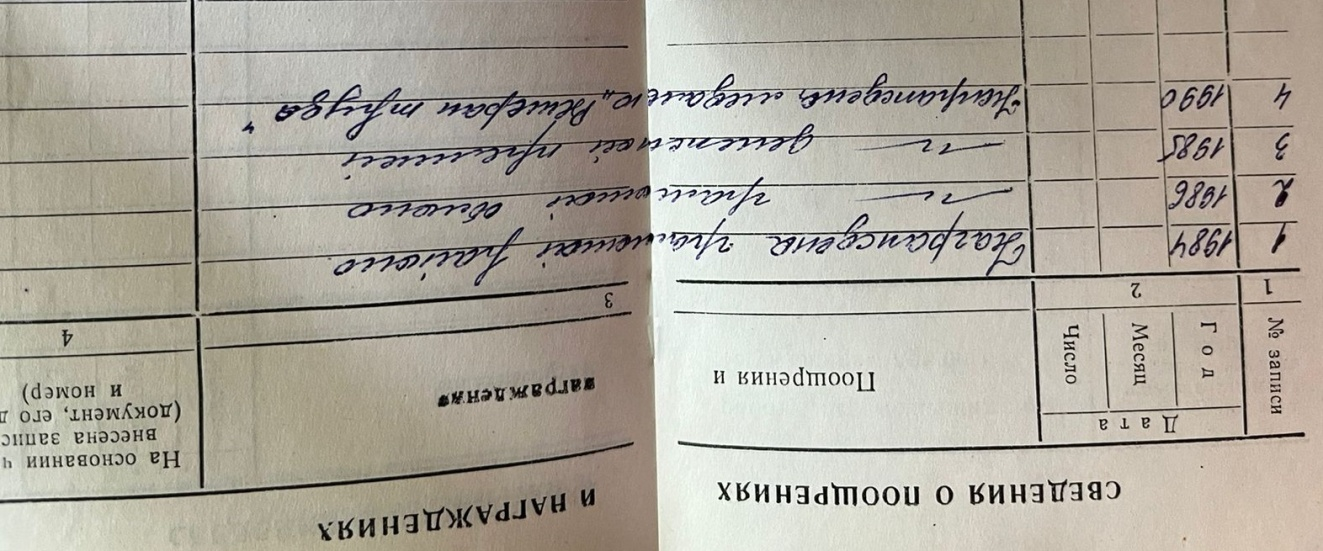 СВЕДЕНИЯ О ПООЩРЕНИЯХ И НАГРАЖДЕНИЯХ
№ записи
Дата
Год
Месяц
Число
Поощрения и награждения
На основании ч
внесена запис
(документ, его д
и номер)
1 2 3 4
1 1984 Награждена грамотой районо
2 1986 —"— грамотой облоно
3 1985 —"— денежной премией
4 1990 Награждена медалью „Ветеран труда"